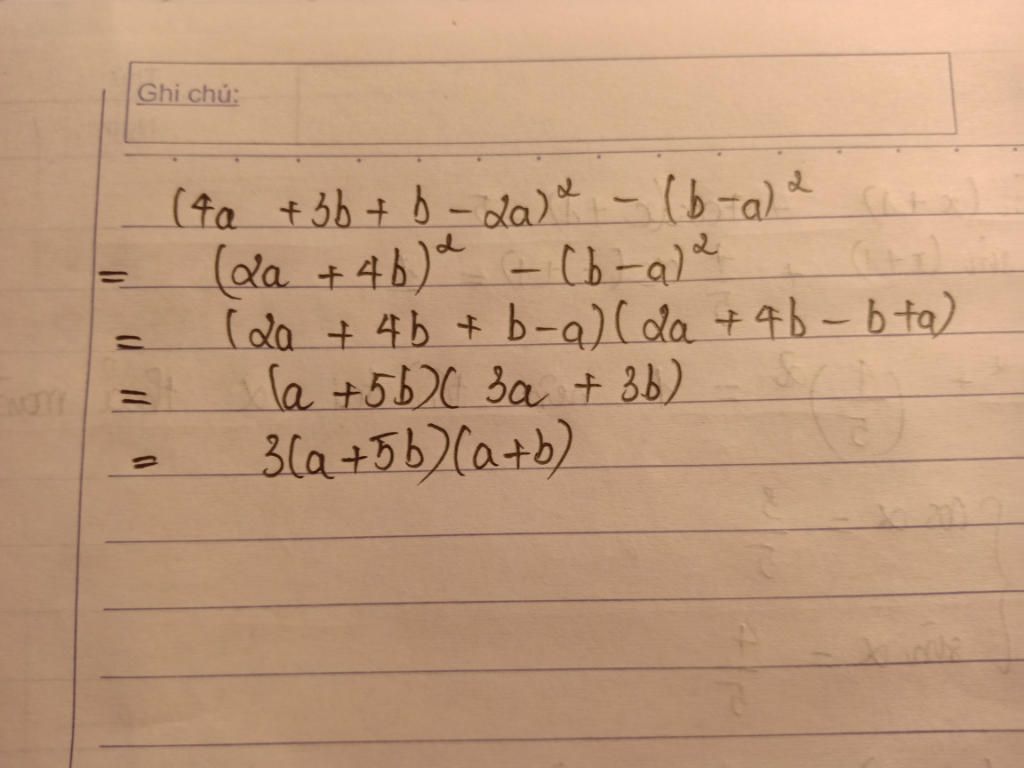 Ghi chú:
(4a + 3b + b - 2a)² - (b - a)²
= (2a + 4b)² - (b - a)²
= (2a + 4b + b - a)(2a + 4b - b + a)
= (a + 5b)(3a + 3b)
= 3(a + 5b)(a + b)